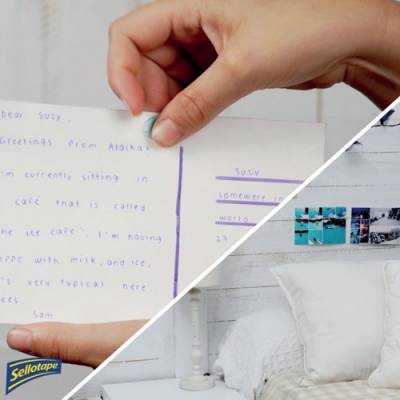 Dear Suzy,
Greetings from Alaska!
I'm currently sitting in
cafe that is called
the ice cafe". I'm having
with milk, and ice,
it's very typical here.
Sam
Suzy
somewere in
world
23
Sellotape